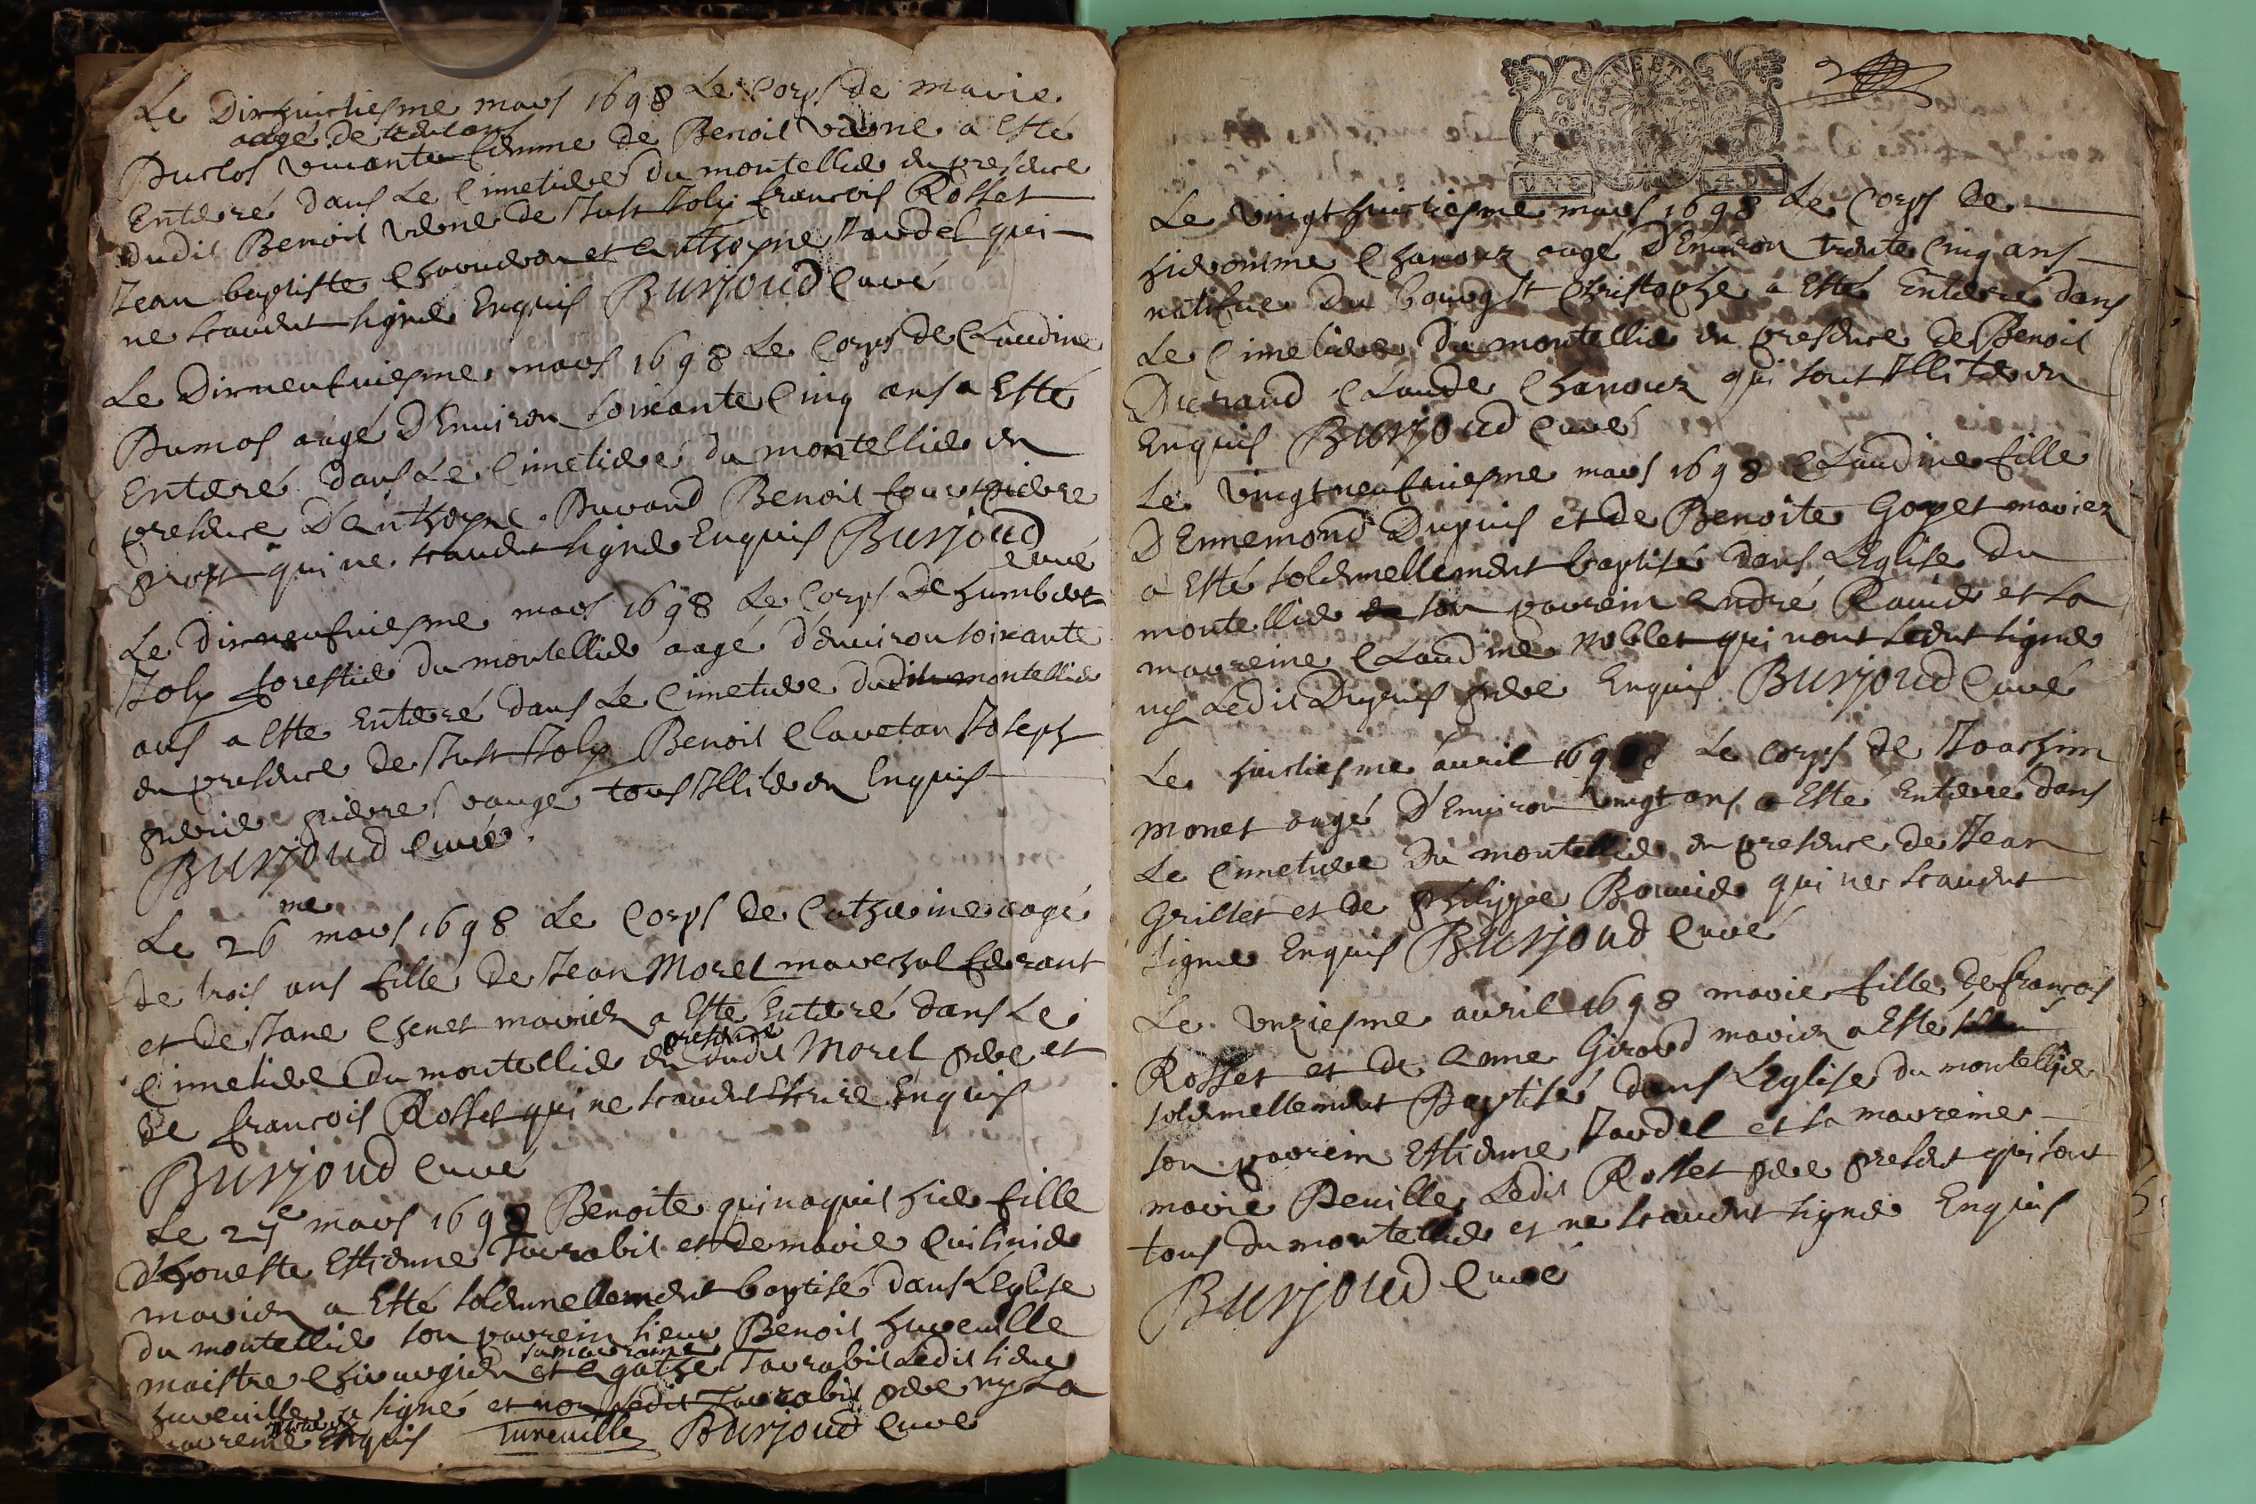 Le Dixhuictiesme mars 1698 Le Corps de marie
aagé de trent ans
Duclos vivante femme de Benoit verne a esté
Enterré dans Le Cimetiere du montellier en presence
dudit Benoit verne de Just Joly françois Rosset
Jean baptiste Chavudon et Anthoyne Jardel qui
ne scavent signer Enquis Burjoud Curé
Le Dixneufviesme mars 1698 Le Corps de Claudine
Dumas aagé D'Environ soixante Cinq ans a Esté
Enterré dans Le Cimetiere du montellier en
presence D'enthoyne Durand Benoit
qui ne scavent signer Enquis Burjoud
Curé
Le Dixneufviesme mars 1698 Le Corps de humbert
Joly forestier du montellier aagé d'environ soixante
ans a Este Enterré dans Le Cimetiere dudit montellier
en presence de Just Joly Benoit Clavetan Joseph
pierre tous Illiteré Enquis
Burjoud Curé
Le 26me mars 1698 Le Corps de Catherine aagé
de trois ans fille de Jean Morel mareschal ferrant
et de Jane Chenet mariez a Esté Enterré dans Le
Cimetiere du montellier en presence dudit Morel pere et
de françois Rosset qui ne scavent Escrire Enquis
Burjoud Curé
Le 27e mars 1698 Benoite qui naquit hier fille
d'honeste Estienne Jarrabit et de marie Cuisinier
mariez a Esté solennellement baptisé dans L'Eglise
du montellier son parrein sieur Benoit hureville
maistre Chirurgien et sa marraine Agathe Jarrabit Ledit sieur
hureville a signé et non Ledit Jarrabit pere ny La
marreine Enquis hureville Burjoud Curé
GENEETR
VN S 4 D
Le Vingt huictiesme mars 1698 Le Corps de
hierosme Chanoux aagé D'Environ trente Cinq ans
natifue du bourg St Christophe a Esté Enterré dans
Le Cimetiere du montellier en presence de Benoit
Durand Claude Chanoux qui sont Illiteré
Enquis Burjoud Curé
Le Vingtneufviesme mars 1698 Claudine fille
D'Ennemond Dupuis et de Benoite Goyet mariez
a Esté solennellement baptisé dans L'Eglise du
montellier son parrein André Ravier et sa
marreine Claudine Noblet qui n'ont sceut signer
ny Ledit Dupuis pere Enquis Burjoud Curé
Le huictiesme avril 1698 Le Corps de Joachim
Monet aagé D'Environ vingt ans a Esté Enterré dans
Le Cimetiere du montellier en presence de Jean
Grillet et de Philippe Bouvier qui ne scavent
signer Enquis Burjoud Curé
Le Unziesme avril 1698 marie fille de françois
Rosset et de Anne Giroud mariez a Esté
solennellement Baptisé dans L'Eglise du montellier
son parrein Estienne Jardel et sa marreine
marie Deville Ledit Rosset pere present qui sont
tous du montellier et ne scavent signer Enquis
Burjoud Curé